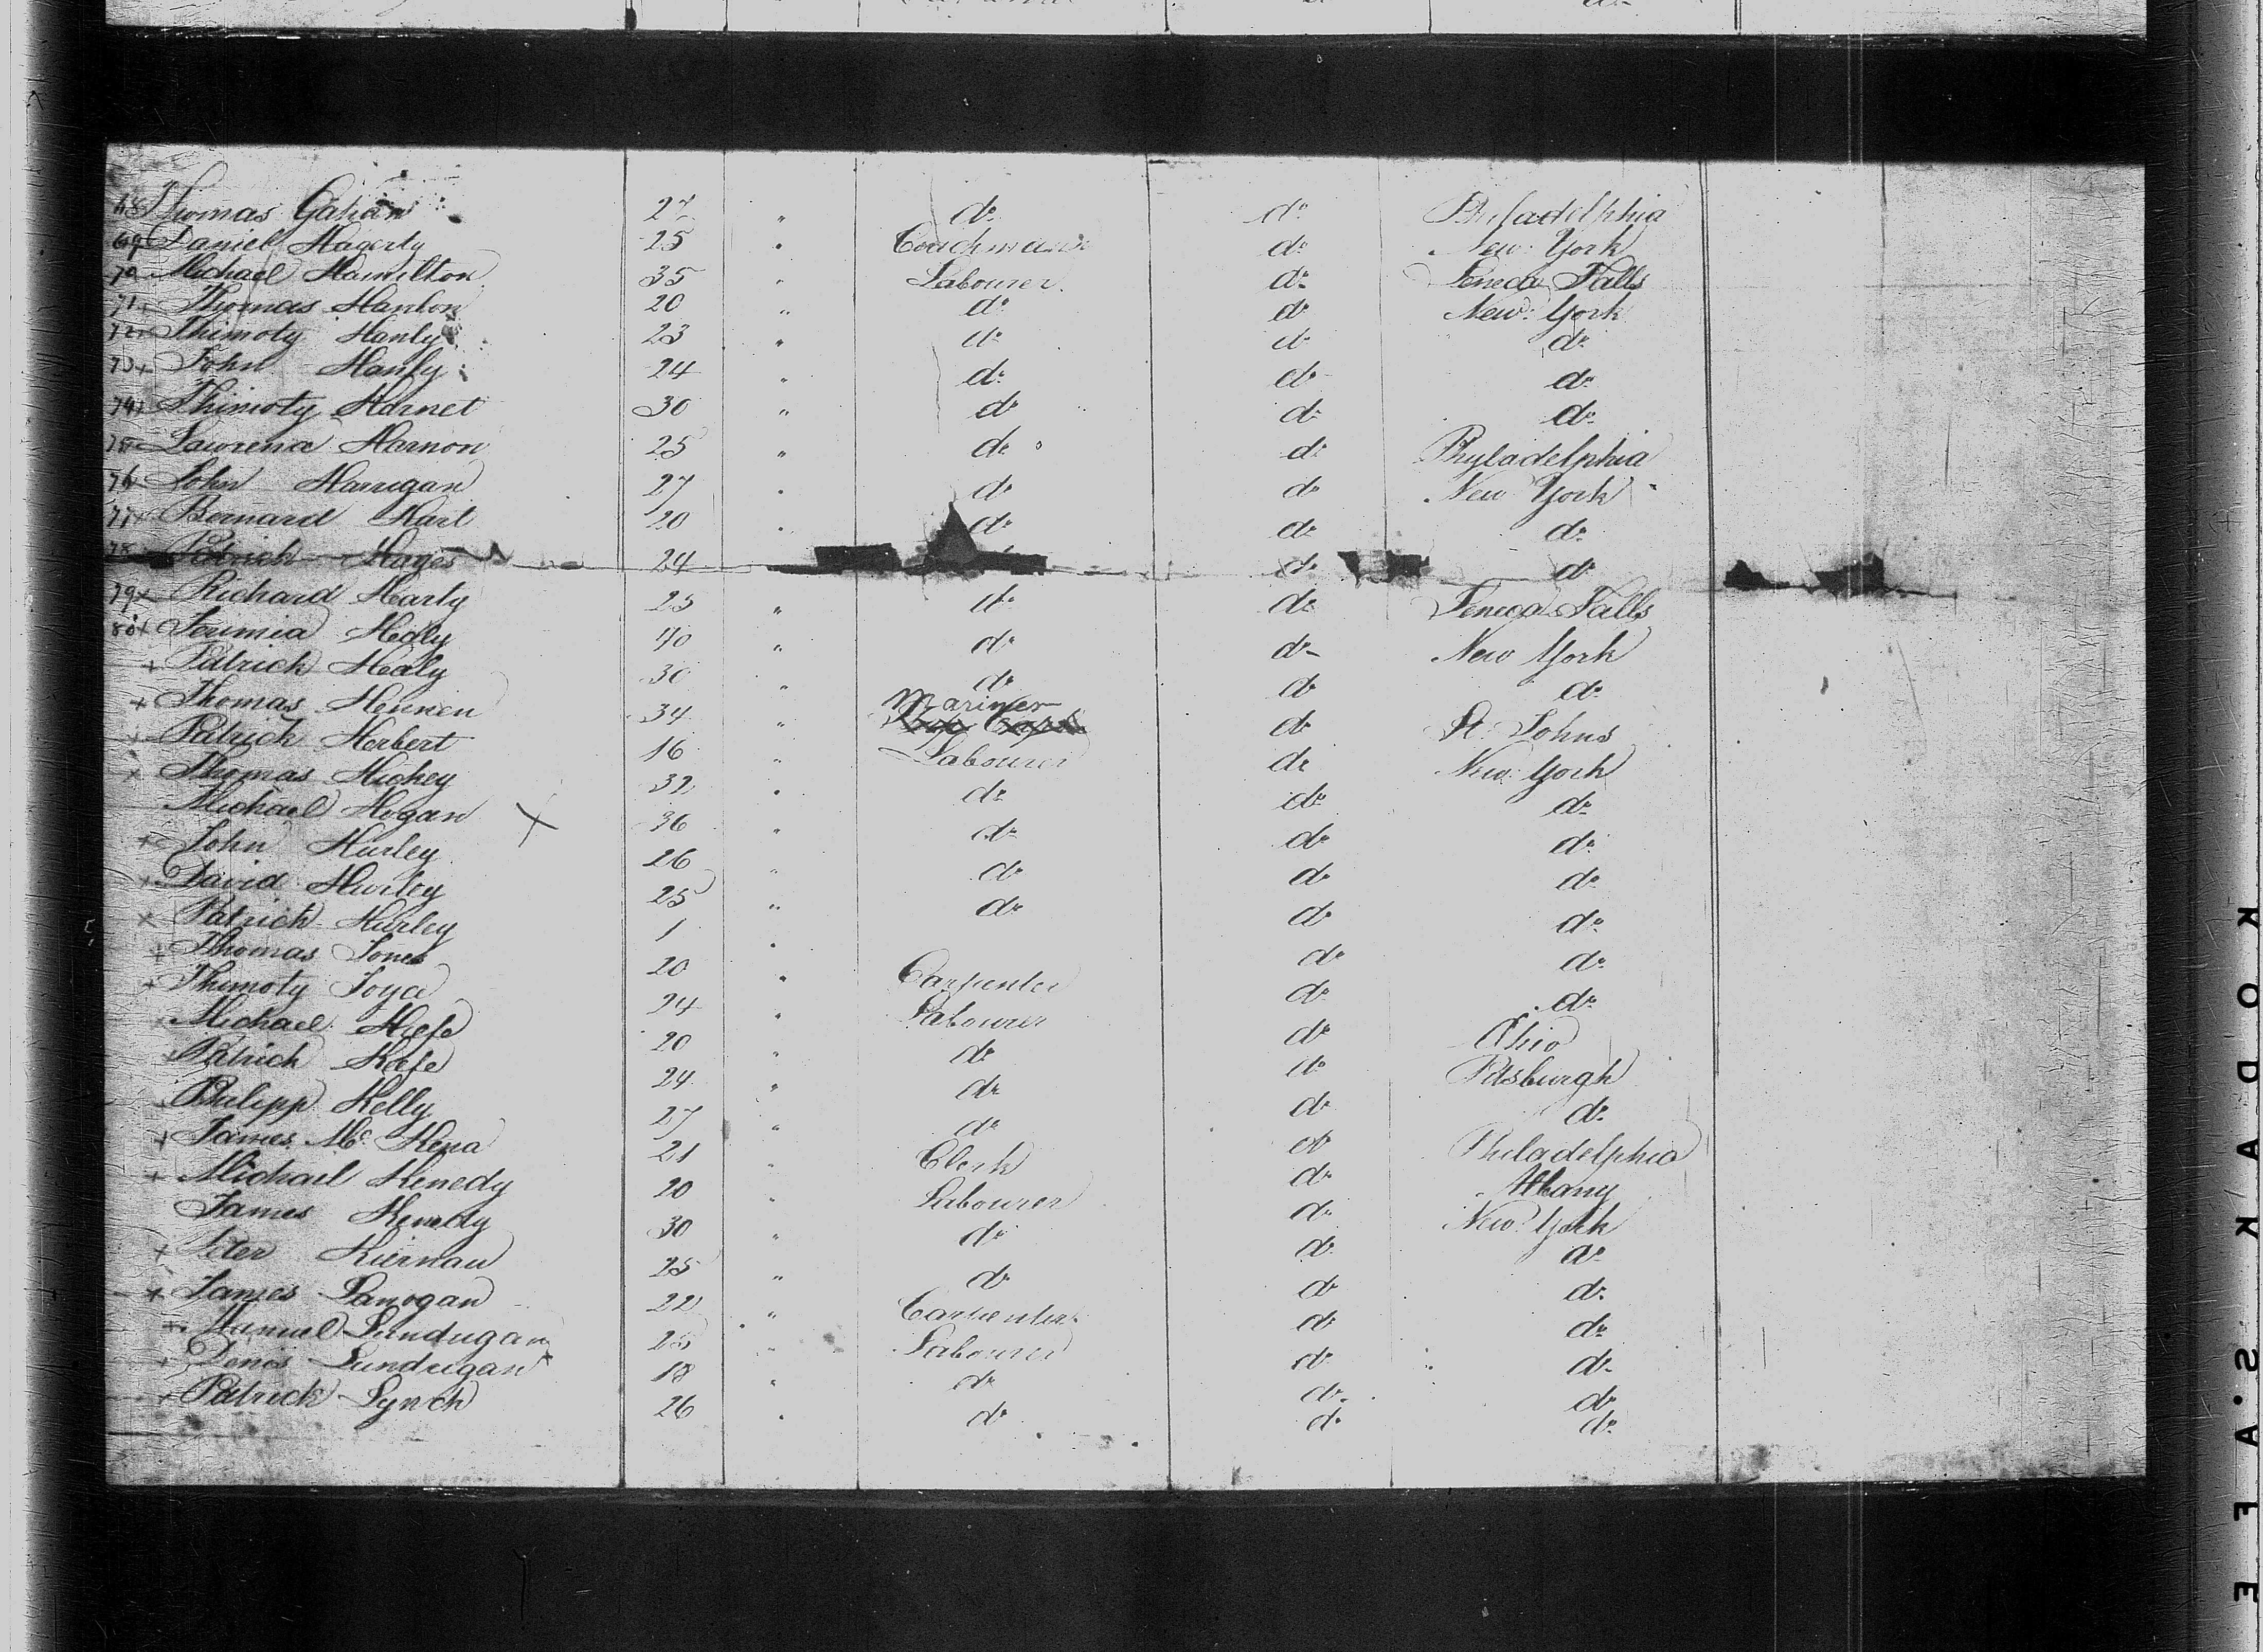 68 Thomas Gahan 27 " do do Philadelphia
69 Daniel Hagerty 25 " Coachman do New York
70 Michael Hamilton 35 " Labourer do Seneca Falls
71 Thomas Hanlon 20 " do do New York
72 Thimoty Hanly 23 " do do do
73 + John Hanly 24 " do do do
74 Thimoty Harnet 30 " do do do
75 Lawrence Harnon 25 " do do Phyladelphia
76 John Harrigan 27 " do do New York
77 + Bernard Hart 20 " do do do
78 Patrick Hayes 24 do do
79 x Richard Harly 25 " do do Seneca Falls
80 + Jeremia Healy 40 " do do New York
+ Patrick Healy 30 " do do do
+ Thomas Hennen 34 " Mariner do St. Johns
+ Patrick Herbert 16 " Labourer do New York
+ Thomas Hickey 32 " do do do
Michael Hogan X 36 " do do do
+ John Hurley 26 " do do do
+ David Hurley 25 " do do do
x Patrick Hurley 1 " do do
+ Thomas Jones 20 " Carpenter do do
+ Thimoty Joyce 24 " Labourer do Ohio
Michael Keefe 20 " do do Pitsburgh
Patrick Keefe 24 " do do do
Philipp Kelly 27 " do do Philadelphia
+ James Mc Kena 21 " Clerk do Albany
+ Michael Kenedy 20 " Labourer do New York
James Kenedy 30 " do do do
+ Peter Kiernan 25 " do do do
+ James Lanogan 22 " Carpenter do do
+ Lundugan 25 " Labourer do do
+ Denis Lundrigan + 18 " do do do
+ Patrick Lynch 26 " do do do
KODAK S.A.FE E